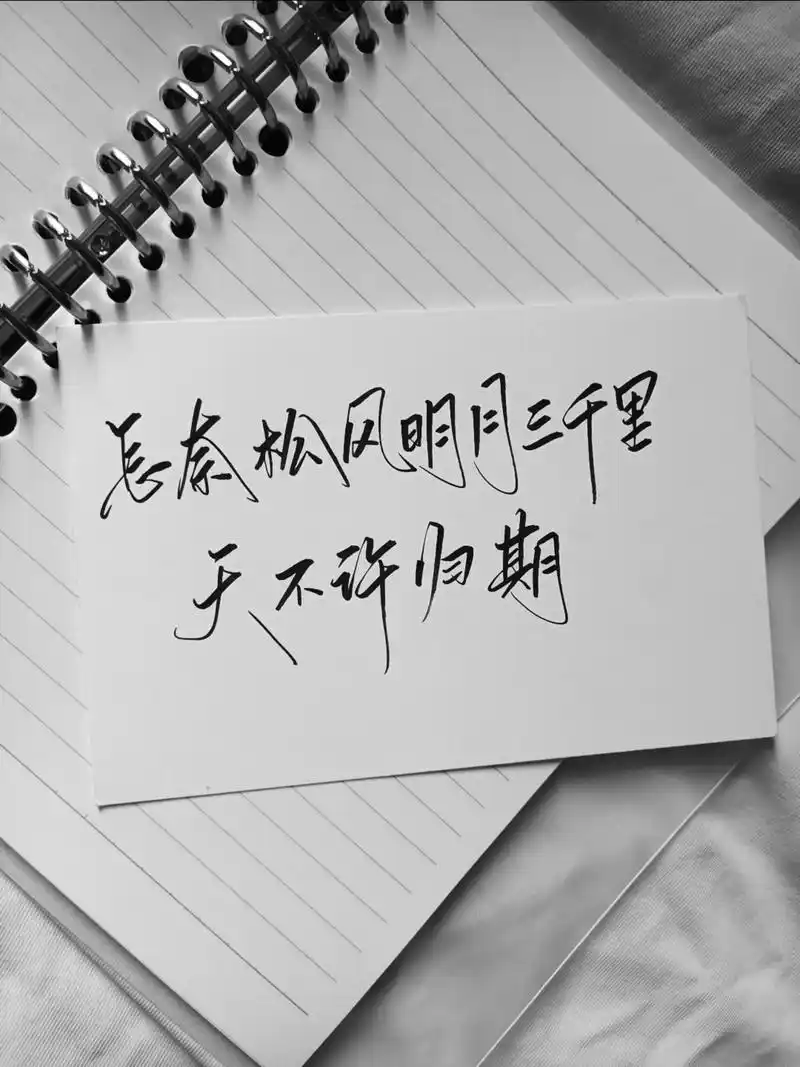 怎奈松风明月三千里
天不许归期